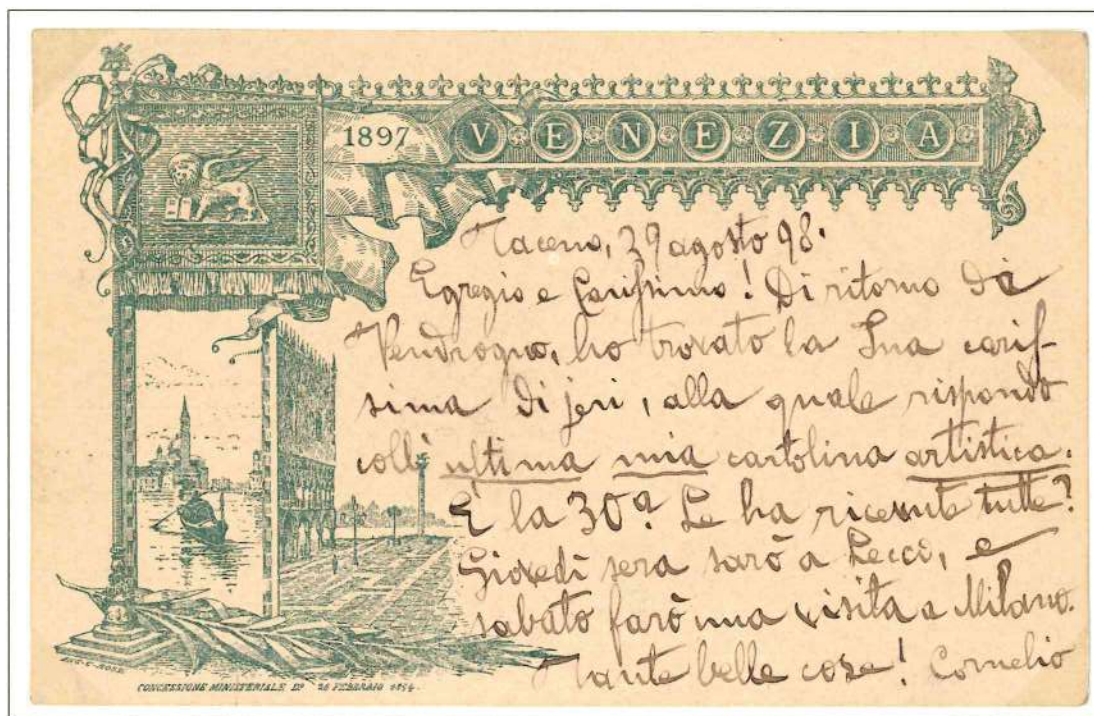 1897 VENEZIA
Taceno, 29 agosto 98.
Egregio e Carissimo! Di ritorno da
Vendrogno, ho trovato la Sua caris-
sima di jeri, alla quale rispondo
coll'ultima mia cartolina artistica.
È la 30ª. Le ha ricevute tutte?
Giovedì sera sarò a Lecco, e
sabato farò una visita a Milano.
Tante belle cose! Cornelio
CONCESSIONE MINISTERIALE Dº 28 FEBBRAIO 1894.